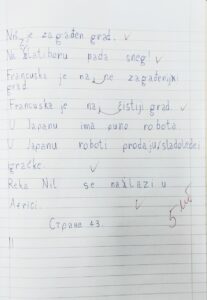 Niš je zagađen grad.
Na Zlatiboru pada sneg!
Francuska je naj ne zagađenijki
grad.
Francuska je naj čistiji grad.
U Japanu ima puno robota.
U Japanu roboti prodaju sladolede i
igračke.
Reka Nil se nalazi u
Africi.
5
Страна 43.